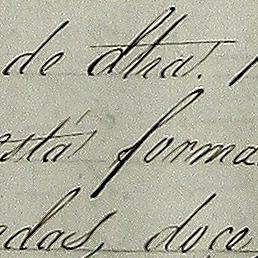 de dha.
está forma
edas, doce